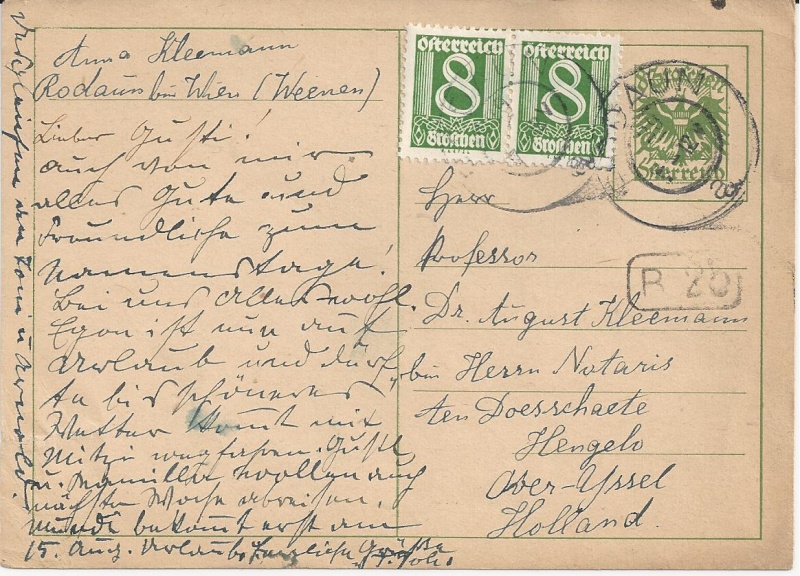 Anna Kleemann
Rodaun bei Wien (Weenen)
Lieber Gustl!
auch von mir
alles Gute und
Freundliche zum
Namenstage!
Bei uns alles wohl.
Egon ist nun auf
Urlaub und dürf-
te bis schöneres
Wetter kommt mit
Mitzi wegfahren. Gustl
u. Kamilla wollen auch
nächste Woche abreisen,
bekomt erst am
15. Aug. Urlaub. Herzliche Grüße
Österreich
8
Groschen
Österreich
8
Groschen
8 Groschen
Österreich
RODAUN
Herr
Professor
Dr. August Kleemann
bei Herrn Notaris
ten Doesschaete
Hengelo
Over-Yssel
Holland.
B 20